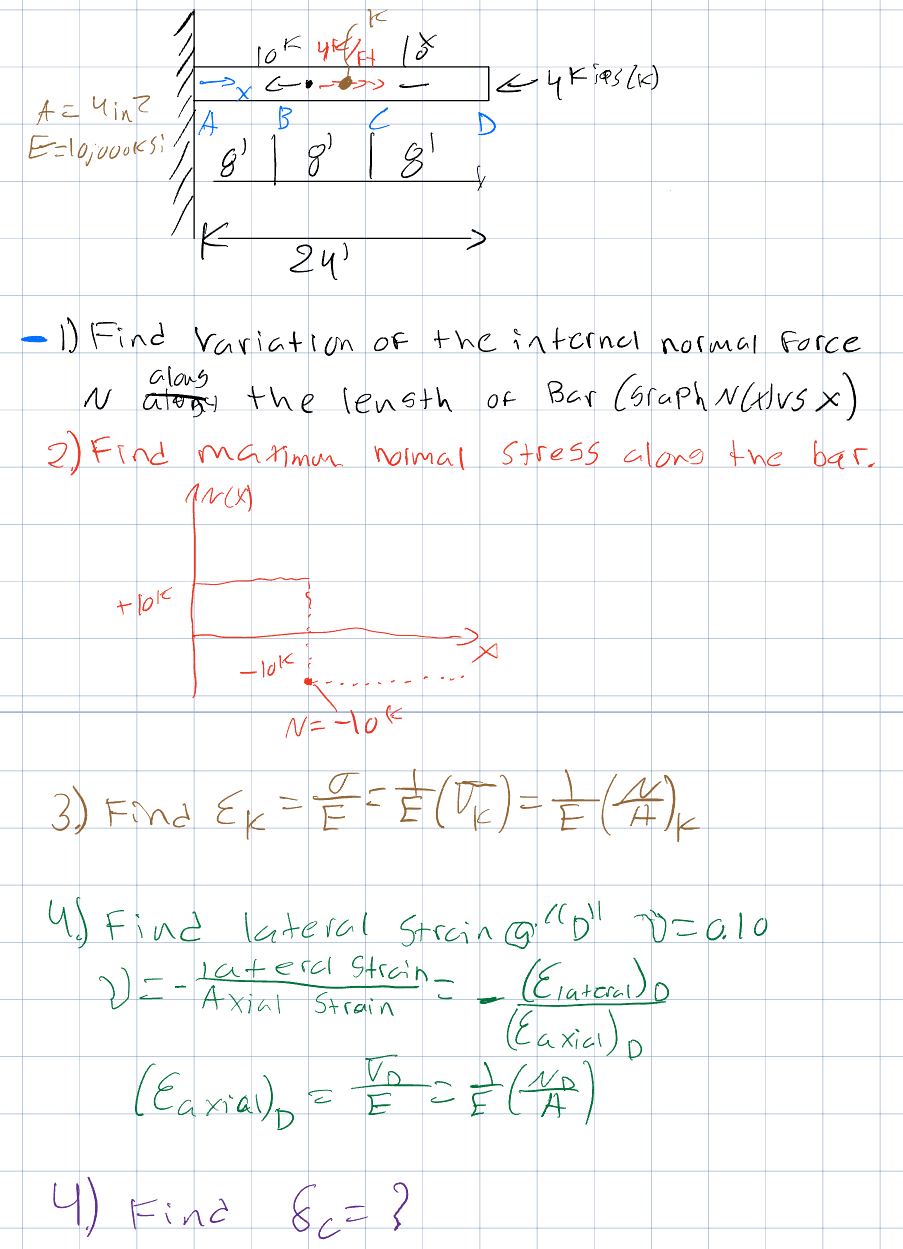 K
10K 4K/Ft 18
x
← 4Kips(K)
A = 4in2
E=10,000ksi
A B C D
8' 8' 8'
24'
- 1) Find variation of the internal normal force
N along the length of Bar (Graph N(x) vs x)
2) Find maximum normal stress along the bar.
N(x)
+10K
x
-10K
N = -10K
3.) Find εK = σ/E = 1/E (σK) = 1/E (N/A)K
4.) Find lateral strain @ "D" ν=0.10
ν = - Lateral Strain/Axial Strain = - (εlateral)D/(εaxial)D
(εaxial)D = σD/E = 1/E (ND/A)
4) Find δc = ?